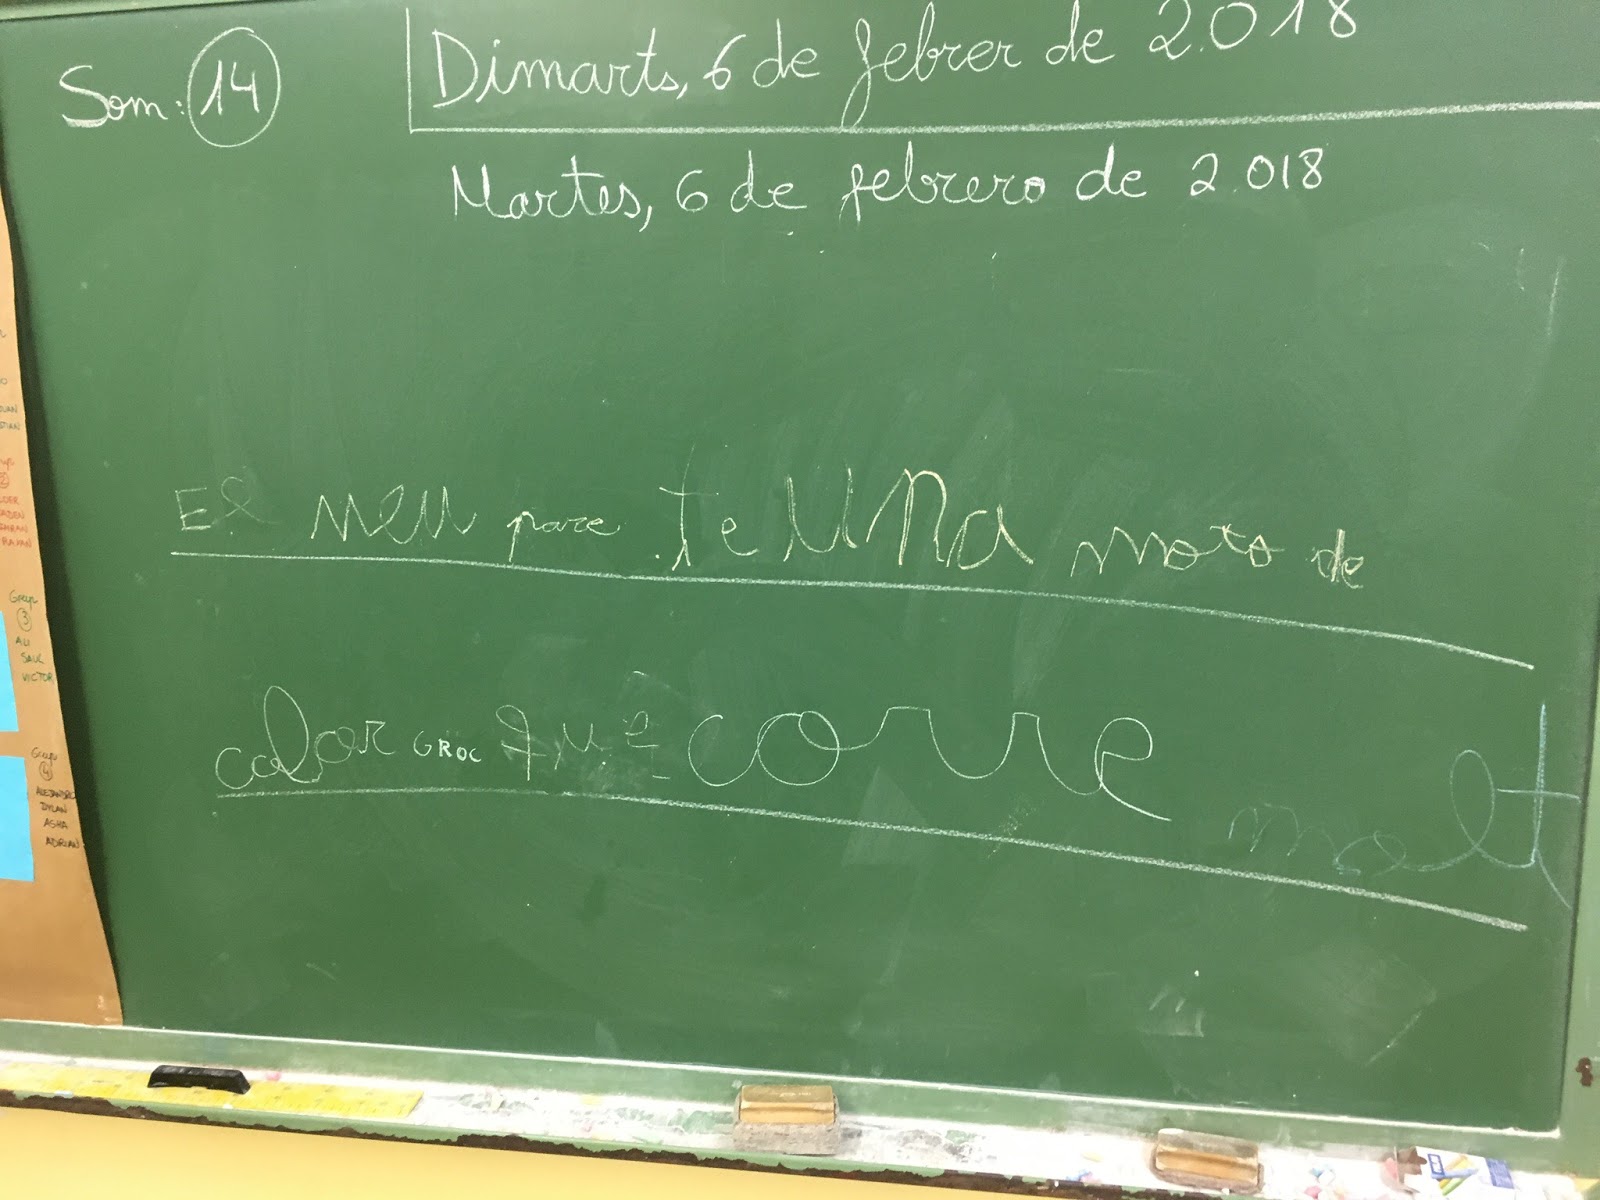 Som: 14
Dimarts, 6 de febrer de 2.018
Martes, 6 de febrero de 2.018
El meu pare te una moto de
color GROC que corre molt
Grup
3
ALI
SAUL
VICTOR
Grup
4
ALEJANDRO
DYLAN
ASHA
ADRIAN